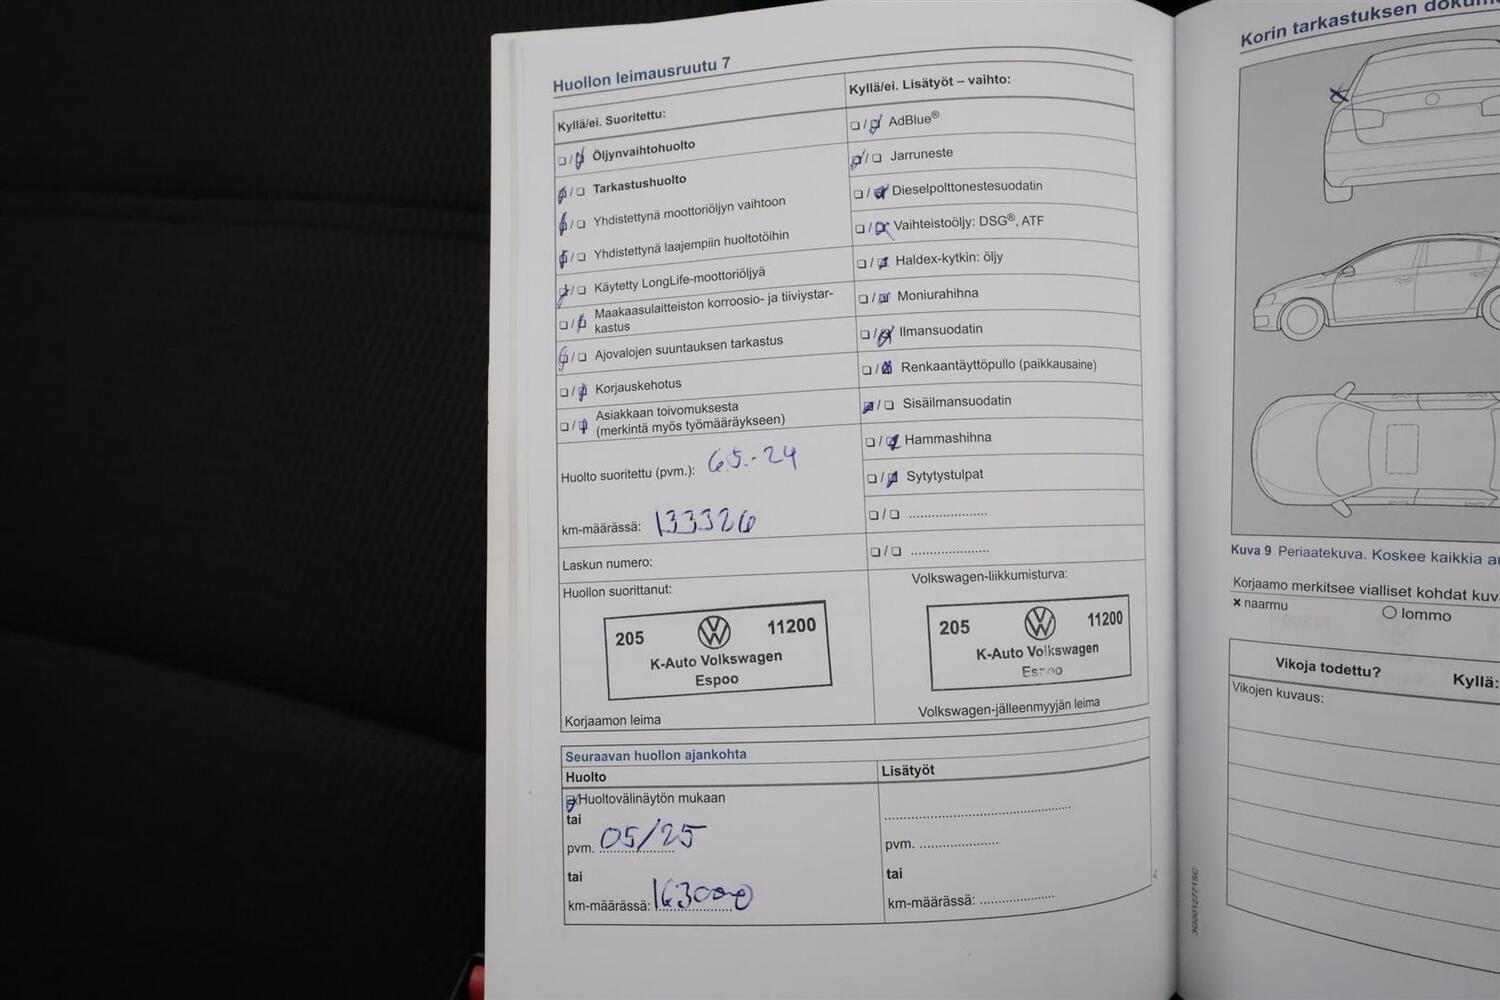 Huollon leimausruutu 7
Kyllä/ei. Suoritettu:
❏/❏ Öljynvaihtohuolto
❏/❏ Tarkastushuolto
❏/❏ Yhdistettynä moottoriöljyn vaihtoon
❏/❏ Yhdistettynä laajempiin huoltotöihin
❏/❏ Käytetty LongLife-moottoriöljyä
❏/❏ Maakaasulaitteiston korroosio- ja tiiviystar-
kastus
❏/❏ Ajovalojen suuntauksen tarkastus
❏/❏ Korjauskehotus
❏/❏ Asiakkaan toivomuksesta
(merkintä myös työmääräykseen)
Huolto suoritettu (pvm.): 6.5.-24
km-määrässä: 133326
Laskun numero:
Huollon suorittanut:
205 11200
K-Auto Volkswagen
Espoo
Korjaamon leima
Kyllä/ei. Lisätyöt – vaihto:
❏/❏ AdBlue®
❏/❏ Jarruneste
❏/❏ Dieselpolttonestesuodatin
❏/❏ Vaihteistoöljy: DSG®, ATF
❏/❏ Haldex-kytkin: öljy
❏/❏ Moniurahihna
❏/❏ Ilmansuodatin
❏/❏ Renkaantäyttöpullo (paikkausaine)
❏/❏ Sisäilmansuodatin
❏/❏ Hammashihna
❏/❏ Sytytystulpat
❏/❏ .....................
❏/❏ .....................
Volkswagen-liikkumisturva:
205 11200
K-Auto Volkswagen
Espoo
Volkswagen-jälleenmyyjän leima
Seuraavan huollon ajankohta
Huolto
Huoltovälinäytön mukaan
tai
pvm. 05/25
tai
km-määrässä: 163000
Lisätyöt
pvm. .....................
tai
km-määrässä: .....................
3G0012771SC
Korin tarkastuksen
Kuva 9 Periaatekuva. Koskee kaikkia
Korjaamo merkitsee vialliset kohdat
× naarmu ○ lommo
Vikoja todettu? Kyllä:
Vikojen kuvaus: